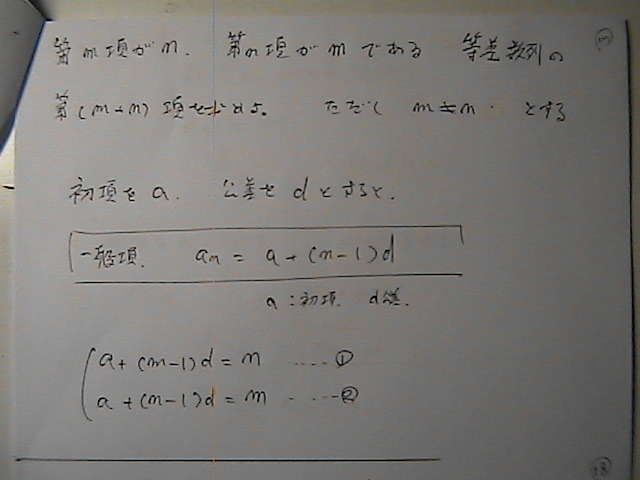 第m項がn. 第n項がmである 等差数列の
第(m+n)項を求めよ。 ただし m≠n. とする
初項をa. 公差をdとすると.
一般項. an = a+(n-1)d
a:初項 d
a+(m-1)d=n ‥‥‥①
a+(n-1)d=m ‥‥‥②